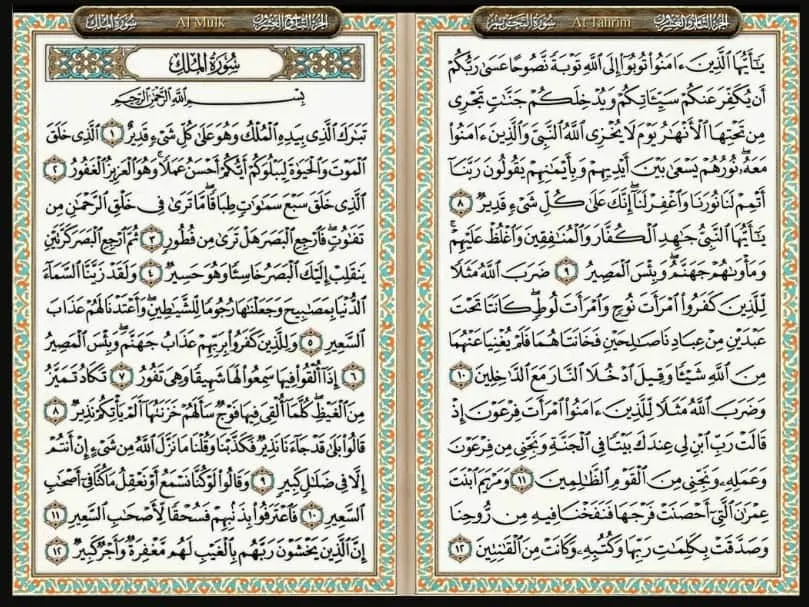 الجزء الثامن والعشرون
At Tahrim
سورة التحريم
يَـٰٓأَيُّهَا ٱلَّذِينَ ءَامَنُوا۟ تُوبُوٓا۟ إِلَى ٱللَّهِ تَوْبَةً نَّصُوحًا عَسَىٰ رَبُّكُمْ
أَن يُكَفِّرَ عَنكُمْ سَيِّـَٔاتِكُمْ وَيُدْخِلَكُمْ جَنَّـٰتٍ تَجْرِى
مِن تَحْتِهَا ٱلْأَنْهَـٰرُ يَوْمَ لَا يُخْزِى ٱللَّهُ ٱلنَّبِىَّ وَٱلَّذِينَ ءَامَنُوا۟
مَعَهُۥ ۖ نُورُهُمْ يَسْعَىٰ بَيْنَ أَيْدِيهِمْ وَبِأَيْمَـٰنِهِمْ يَقُولُونَ رَبَّنَآ
أَتْمِمْ لَنَا نُورَنَا وَٱغْفِرْ لَنَآ ۖ إِنَّكَ عَلَىٰ كُلِّ شَىْءٍ قَدِيرٌ ٨
يَـٰٓأَيُّهَا ٱلنَّبِىُّ جَـٰهِدِ ٱلْكُفَّارَ وَٱلْمُنَـٰفِقِينَ وَٱغْلُظْ عَلَيْهِمْ ۚ
وَمَأْوَىٰهُمْ جَهَنَّمُ ۖ وَبِئْسَ ٱلْمَصِيرُ ٩ ضَرَبَ ٱللَّهُ مَثَلًا
لِّلَّذِينَ كَفَرُوا۟ ٱمْرَأَتَ نُوحٍ وَٱمْرَأَتَ لُوطٍ ۖ كَانَتَا تَحْتَ
عَبْدَيْنِ مِنْ عِبَادِنَا صَـٰلِحَيْنِ فَخَانَتَاهُمَا فَلَمْ يُغْنِيَا عَنْهُمَا
مِنَ ٱللَّهِ شَيْـًٔا وَقِيلَ ٱدْخُلَا ٱلنَّارَ مَعَ ٱلدَّٰخِلِينَ ١٠
وَضَرَبَ ٱللَّهُ مَثَلًا لِّلَّذِينَ ءَامَنُوا۟ ٱمْرَأَتَ فِرْعَوْنَ إِذْ
قَالَتْ رَبِّ ٱبْنِ لِى عِندَكَ بَيْتًا فِى ٱلْجَنَّةِ وَنَجِّنِى مِن فِرْعَوْنَ
وَعَمَلِهِۦ وَنَجِّنِى مِنَ ٱلْقَوْمِ ٱلظَّـٰلِمِينَ ١١ وَمَرْيَمَ ٱبْنَتَ
عِمْرَٰنَ ٱلَّتِىٓ أَحْصَنَتْ فَرْجَهَا فَنَفَخْنَا فِيهِ مِن رُّوحِنَا
وَصَدَّقَتْ بِكَلِمَـٰتِ رَبِّهَا وَكُتُبِهِۦ وَكَانَتْ مِنَ ٱلْقَـٰنِتِينَ ١٢
الجزء التاسع والعشرون
Al Mulk
سورة الملك
سُورَةُ ٱلْمُلْكِ
بِسْمِ ٱللَّهِ ٱلرَّحْمَـٰنِ ٱلرَّحِيمِ
تَبَـٰرَكَ ٱلَّذِى بِيَدِهِ ٱلْمُلْكُ وَهُوَ عَلَىٰ كُلِّ شَىْءٍ قَدِيرٌ ١ ٱلَّذِى خَلَقَ
ٱلْمَوْتَ وَٱلْحَيَوٰةَ لِيَبْلُوَكُمْ أَيُّكُمْ أَحْسَنُ عَمَلًا ۚ وَهُوَ ٱلْعَزِيزُ ٱلْغَفُورُ ٢
ٱلَّذِى خَلَقَ سَبْعَ سَمَـٰوَٰتٍ طِبَاقًا ۖ مَّا تَرَىٰ فِى خَلْقِ ٱلرَّحْمَـٰنِ مِن
تَفَـٰوُتٍ ۖ فَٱرْجِعِ ٱلْبَصَرَ هَلْ تَرَىٰ مِن فُطُورٍ ٣ ثُمَّ ٱرْجِعِ ٱلْبَصَرَ كَرَّتَيْنِ
يَنقَلِبْ إِلَيْكَ ٱلْبَصَرُ خَاسِئًا وَهُوَ حَسِيرٌ ٤ وَلَقَدْ زَيَّنَّا ٱلسَّمَآءَ
ٱلدُّنْيَا بِمَصَـٰبِيحَ وَجَعَلْنَـٰهَا رُجُومًا لِّلشَّيَـٰطِينِ ۖ وَأَعْتَدْنَا لَهُمْ عَذَابَ
ٱلسَّعِيرِ ٥ وَلِلَّذِينَ كَفَرُوا۟ بِرَبِّهِمْ عَذَابُ جَهَنَّمَ ۖ وَبِئْسَ ٱلْمَصِيرُ
٦ إِذَآ أُلْقُوا۟ فِيهَا سَمِعُوا۟ لَهَا شَهِيقًا وَهِىَ تَفُورُ ٧ تَكَادُ تَمَيَّزُ
مِنَ ٱلْغَيْظِ ۖ كُلَّمَآ أُلْقِىَ فِيهَا فَوْجٌ سَأَلَهُمْ خَزَنَتُهَآ أَلَمْ يَأْتِكُمْ نَذِيرٌ ٨
قَالُوا۟ بَلَىٰ قَدْ جَآءَنَا نَذِيرٌ فَكَذَّبْنَا وَقُلْنَا مَا نَزَّلَ ٱللَّهُ مِن شَىْءٍ إِنْ أَنتُمْ
إِلَّا فِى ضَلَـٰلٍ كَبِيرٍ ٩ وَقَالُوا۟ لَوْ كُنَّا نَسْمَعُ أَوْ نَعْقِلُ مَا كُنَّا فِىٓ أَصْحَـٰبِ
ٱلسَّعِيرِ ١٠ فَٱعْتَرَفُوا۟ بِذَنۢبِهِمْ فَسُحْقًا لِّأَصْحَـٰبِ ٱلسَّعِيرِ ١١
إِنَّ ٱلَّذِينَ يَخْشَوْنَ رَبَّهُم بِٱلْغَيْبِ لَهُم مَّغْفِرَةٌ وَأَجْرٌ كَبِيرٌ ١٢